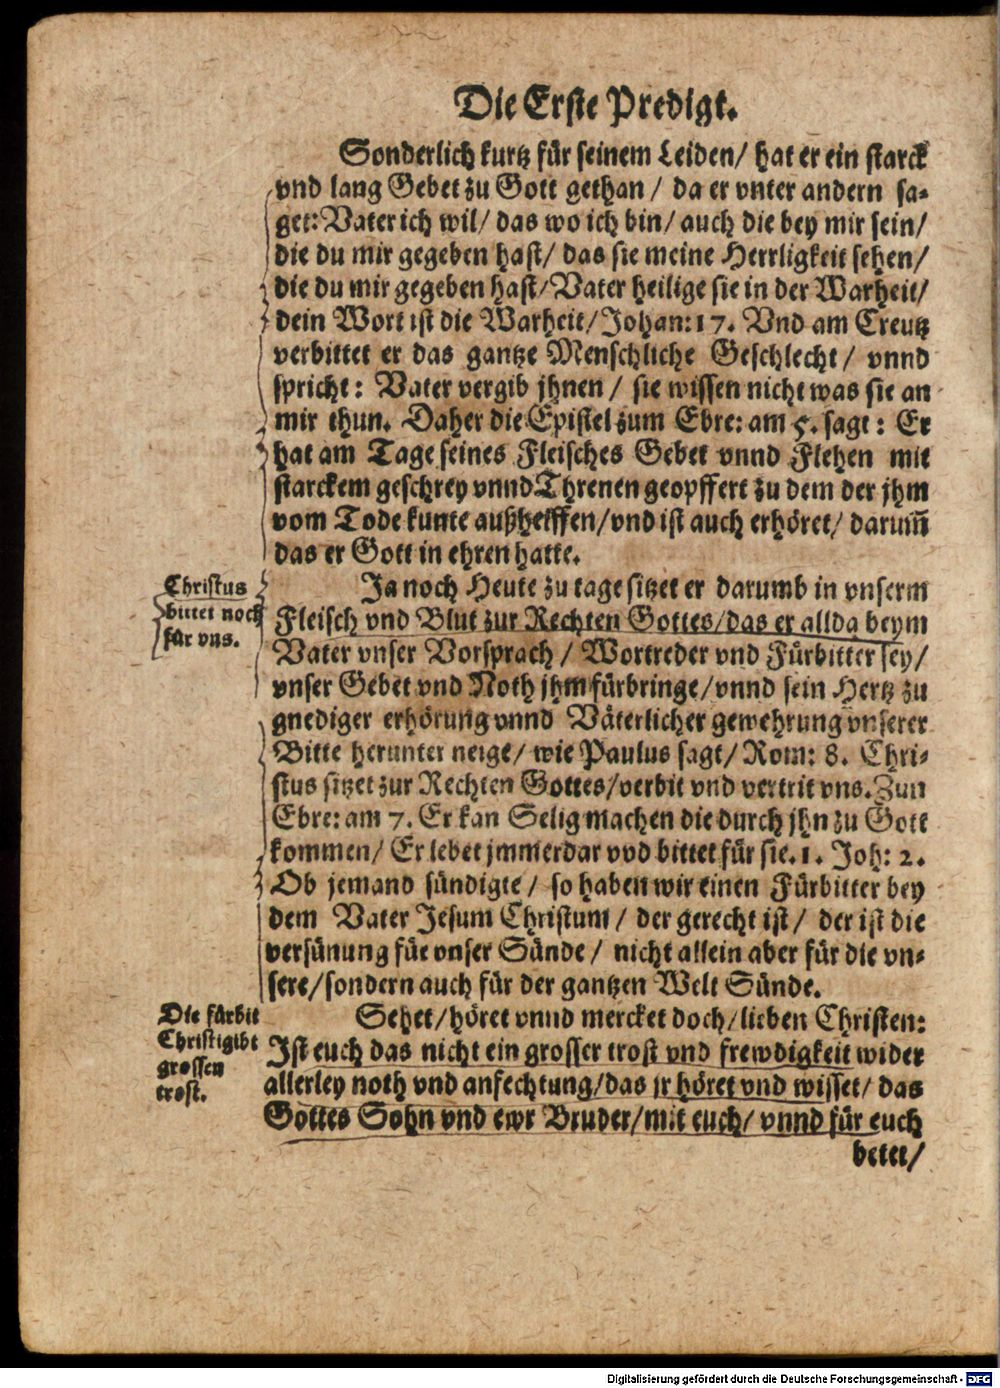 Die Erste Predigt.
Sonderlich kurtz für seinem Leiden/ hat er ein starck
vnd lang Gebet zu Gott gethan / da er vnter andern sa-
get: Vater ich wil/ das wo ich bin/ auch die bey mir sein/
die du mir gegeben hast/ das sie meine Herrligkeit sehen/
die du mir gegeben hast/ Vater heilige sie in der Warheit/
dein Wort ist die Warheit/ Johan: 17. Vnd am Creutz
verbittet er das gantze Menschliche Geschlecht/ vnnd
spricht: Vater vergib jhnen / sie wissen nicht was sie an
mir thun. Daher die Epistel zum Ebre: am 5. sagt: Er
hat am Tage seines Fleisches Gebet vnnd Flehen mit
starckem geschrey vnnd Threnen geopffert zu dem der jhm
vom Tode kunte außhelffen/ vnd ist auch erhöret/ darum̃
das er Gott in ehren hatte.
Ja noch Heute zu tage sitzet er darumb in vnserm
Fleisch vnd Blut zur Rechten Gottes/ das er allda beym
Vater vnser Vorsprach / Wortreder vnd Fürbitter sey/
vnser Gebet vnd Noth jhm fürbringe/ vnnd sein Hertz zu
gnediger erhörung vnnd Väterlicher gewehrung vnserer
Bitte herunter neige/ wie Paulus sagt/ Rom: 8. Chri-
stus sitzet zur Rechten Gottes/ verbit vnd vertrit vns. Zun
Ebre: am 7. Er kan Selig machen die durch jhn zu Gott
kommen/ Er lebet jmmerdar vvd bittet für sie. 1. Joh: 2.
Ob jemand sündigte/ so haben wir einen Fürbitter bey
dem Vater Jesum Christum/ der gerecht ist/ der ist die
versünung für vnser Sünde/ nicht allein aber für die vn-
sere/ sondern auch für der gantzen Welt Sünde.
Sehet/ höret vnnd mercket doch/ lieben Christen:
Ist euch das nicht ein grosser trost vnd frewdigkeit wider
allerley noth vnd anfechtung/ das jr höret vnd wisset/ das
Gottes Sohn vnd ewr Bruder/ mit euch/ vnnd für euch
betet/
Christus
bittet noch
für vns.
Die fürbit
Christi gibt
grossen
trost.
Digitalisierung gefördert durch die Deutsche Forschungsgemeinschaft - DFG